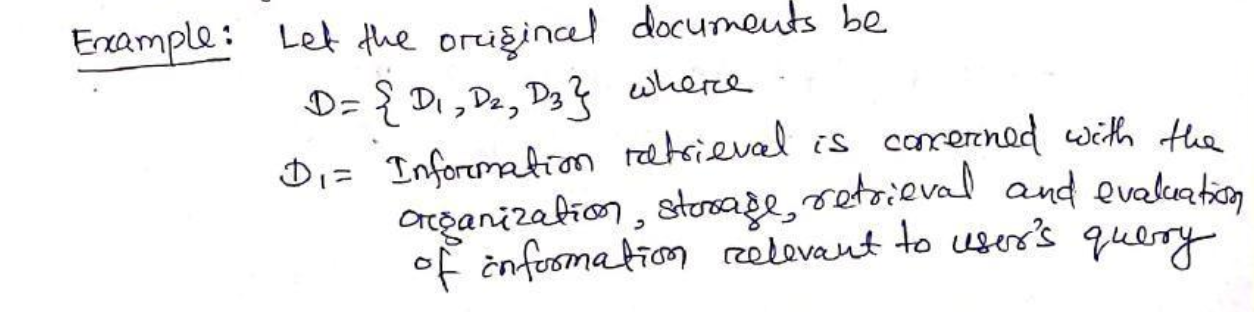 Example: Let the original documents be
D = { D1, D2, D3 } where
D1 = Information retrieval is concerned with the
organization, storage, retrieval and evaluation
of information relevant to user's query